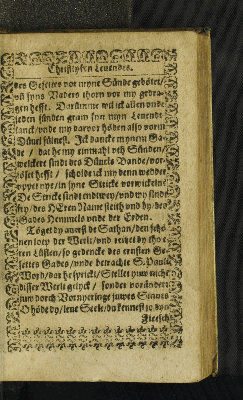 Christlyken Levendes.
des Gesettes vor myne Sünde gebötet/
vñ syns Vaders thorn vor my gedra-
gen hefft. Darümme wil ick allen vnde
jeden sünden gram syn myn Levendt
lanck/vnde my darvor höden also vorm
Düvel sülvest. Ick dancke mynem Ga-
de / dat he my einmahl vth Sünden/
welckere sindt des Düvels Bande/vor-
löset hefft / scholde ick my denn wedder
vppet nye/in syne Stricke vorwickeln?
De Stricke sindt endtwey/vnd wy sindt
fry/des HEren Name steith vnd by/des
Gades Hemmels vnde der Erden.
Töget dy averst de Sathan/den schö-
nen loep der Werlt/vnd reitzet dy tho e-
ren Lüsten/so gedencke des ernsten Ge-
settes Gades/vnde betrachte S. Pauli
Wordt/dar he sprickt/Stellet yuw nicht
disser Werlt gelyck/ sonder vorändert
juw dorch Vornyeringe juwes Sinnes
O höde dy/leve Seele/du kennest jo dyn
Fleesch